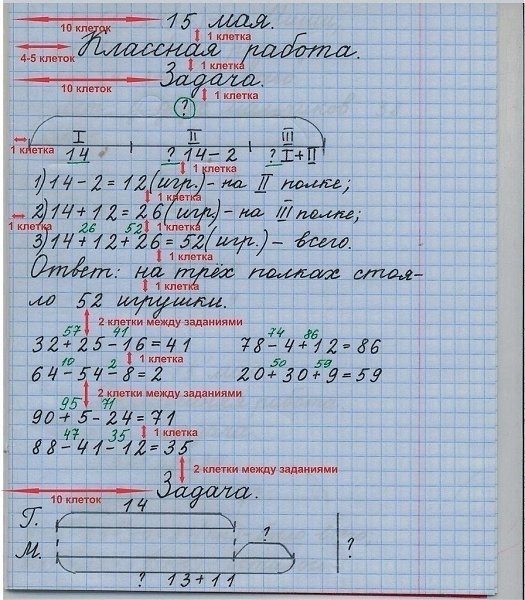 10 клеток 15 мая.
1 клетка
4-5 клеток Классная работа.
1 клетка
10 клеток Задача.
1 клетка
?
I II III
1 клетка 14 ? 14-2 ? I+II
1 клетка
1) 14-2=12(игр.)-на II полке;
1 клетка
2) 14+12=26(игр.)-на III полке;
1 клетка 26 52 1 клетка
3) 14+12+26=52(игр.)-всего.
1 клетка
Ответ: на трёх полках стоя-
1 клетка
ло 52 игрушки.
2 клетки между заданиями
57 41 74 86
32+25-16=41 78-4+12=86
1 клетка
10 2 50 59
64-54-8=2 20+30+9=59
2 клетки между заданиями
95 71
90+5-24=71
47 35 1 клетка
88-41-12=35
2 клетки между заданиями
10 клеток Задача.
14
Г.
?
М. ?
? 13+11